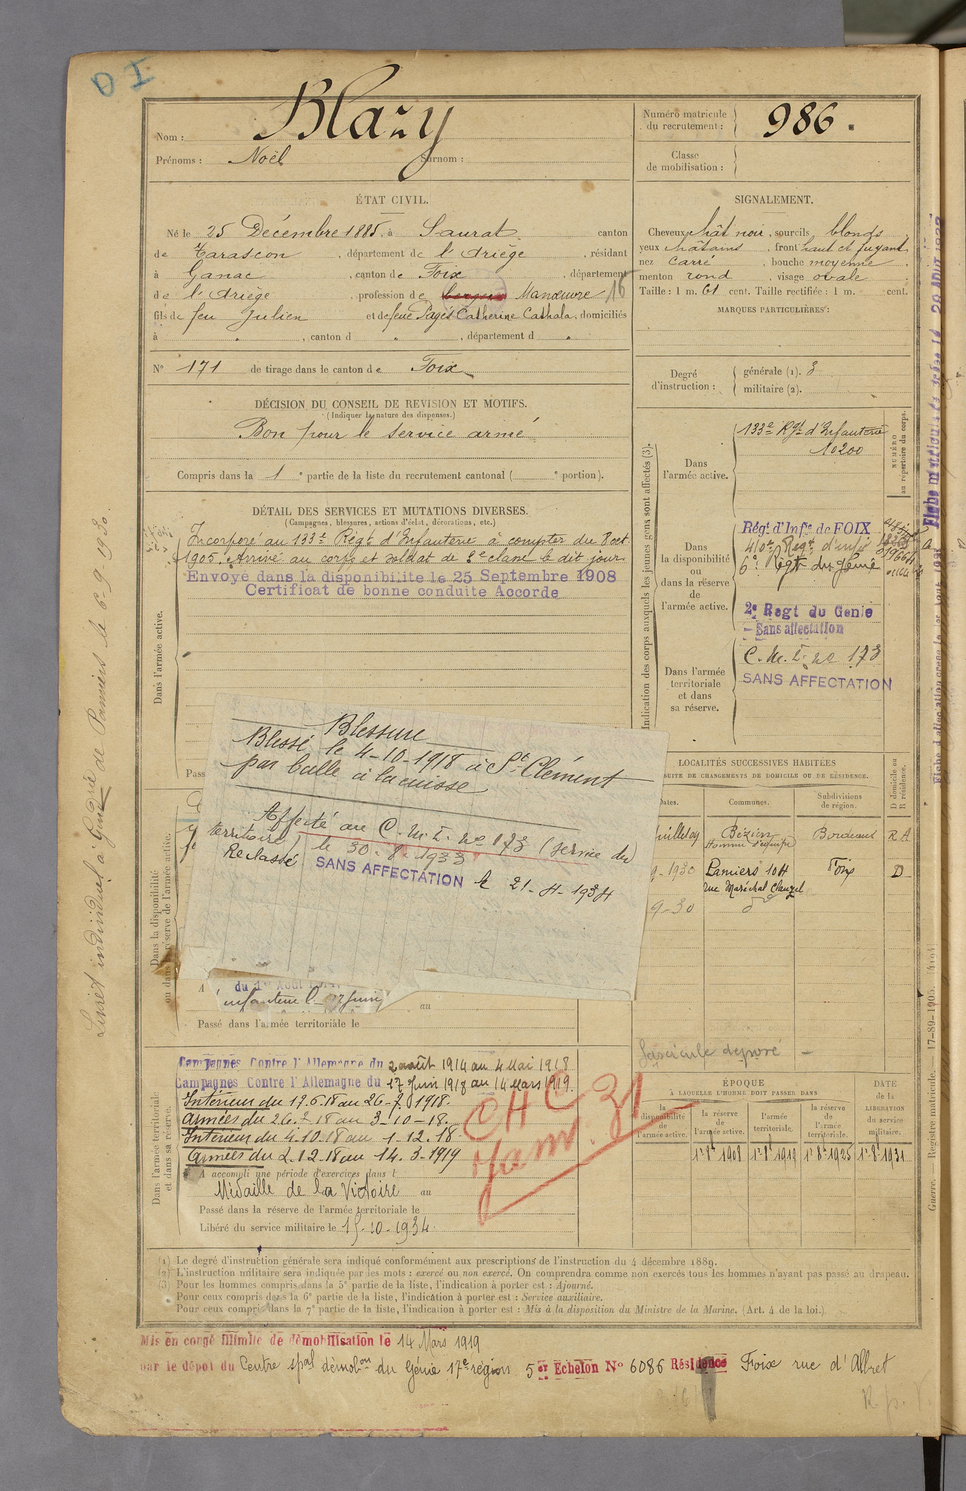 D I
Nom : Blazy
Prénoms : Noël Surnom :
Numéro matricule
du recrutement : 986.
Classe
de mobilisation :
ÉTAT CIVIL.
Né le 25 Décembre 1885, à Saurat canton
de Tarascon, département de l'Ariège, résidant
à Ganac, canton de Foix, département
de l'Ariège, profession de berger Manœuvre 16
fils de feu Julien et de feue Pagès Catherine Cathala, domiciliés
à " , canton d " , département d "
N° 171 de tirage dans le canton de Foix
SIGNALEMENT.
Cheveux chât noir, sourcils blonds
yeux châtains, front haut et fuyant
nez carré, bouche moyenne
menton rond, visage ovale
Taille : 1 m. 61 cent. Taille rectifiée : 1 m. cent.
MARQUES PARTICULIÈRES :
Degré
d'instruction :
générale (1). 3
militaire (2).
DÉCISION DU CONSEIL DE REVISION ET MOTIFS.
(Indiquer la nature des dispenses.)
Bon pour le service armé
Compris dans la 1e partie de la liste du recrutement cantonal ( portion).
DÉTAIL DES SERVICES ET MUTATIONS DIVERSES.
(Campagnes, blessures, actions d'éclat, décorations, etc.)
Incorporé au 133e Régt d'Infanterie à compter du 8 oct
1905. Arrivé au corps et soldat de 2e classe le dit jour
Envoyé dans la disponibilité le 25 Septembre 1908
Certificat de bonne conduite Accordé
Dans l'armée active.
Indication des corps auxquels les jeunes gens sont affectés (3).
NUMÉRO
au répertoire du corps.
Dans
l'armée active.
133e Régt d'Infanterie
10200
Dans
la disponibilité
ou
dans la réserve
de
l'armée active.
Régt d'Infie de FOIX
6e Régt du Génie
2e Regt du Genie
Sans affectation
Dans l'armée
territoriale
et dans
sa réserve.
C.M.I. no 173
SANS AFFECTATION
Pass
Blessure
Blessé le 4-10-1918 à St Clément
par balle à la cuisse
Affecté au C.M.I. no 173 (service du
territoire) le 30-8-1933
Reclassé SANS AFFECTATION le 21-4-1934
LOCALITÉS SUCCESSIVES HABITÉES
SUITE DE CHANGEMENTS DE DOMICILE OU DE RÉSIDENCE.
Dates.
Communes.
Subdivisions
de région.
D domicile ou
R résidence.
Juillet 09 Bézier Bordeaux R.A
Homme d'équipe
9-1930 Pamiers 10 H Foix D
rue Maréchal Clauzel
9-30 do
Dans la disponibilité
ou dans la réserve de l'armée active.
infanterie l 17 juin
au
Passé dans l'armée territoriale le
fascicule déposé -
Campagnes Contre l'Allemagne du 2 août 1914 au 4 Mai 1918
Campagnes Contre l'Allemagne du 17 Juin 1918 au 14 Mars 1919.
Intérieur du 17.6.18 au 26-7-1918.
Armées du 26.7.18 au 3-10-18.
Intérieur du 4.10.18 au 1-12.18
Armées du 2.12.18 au 14.3-1919
A accompli une période d'exercices dans l
Médaille de la Victoire au
Passé dans la réserve de l'armée territoriale le
Libéré du service militaire le 15-10-1934.
Dans l'armée territoriale
et dans sa réserve.
CHC
Janv. 31
ÉPOQUE
À LAQUELLE L'HOMME DOIT PASSER DANS
la
disponibilité
de
l'armée active.
la réserve
de
l'armée active.
l'armée
territoriale.
la réserve
de
l'armée
territoriale.
DATE
de la
LIBÉRATION
du service
militaire.
1er 8bre 1908 1er 8bre 1919 1er 8bre 1925 1er 8bre 1931
(1) Le degré d'instruction générale sera indiqué conformément aux prescriptions de l'instruction du 4 décembre 1889.
(2) L'instruction militaire sera indiquée par les mots : exercé ou non exercé. On comprendra comme non exercés tous les hommes n'ayant pas passé au drapeau.
(3) Pour les hommes compris dans la 5e partie de la liste, l'indication à porter est : Ajourné.
Pour ceux compris dans la 6e partie de la liste, l'indication à porter est : Service auxiliaire.
Pour ceux compris dans la 7e partie de la liste, l'indication à porter est : Mis à la disposition du Ministre de la Marine. (Art. 4 de la loi.)
Mis en congé illimité de démobilisation le 14 Mars 1919
par le dépôt du Centre spal démobon du Génie 17e région 5e Echelon N° 6086 Résidence Foix rue d'Albret
Livret individuel à Gendie de Pamiers le 6-9-1930.
Guerre. Registre matricule. 17-89-1905. [4194]